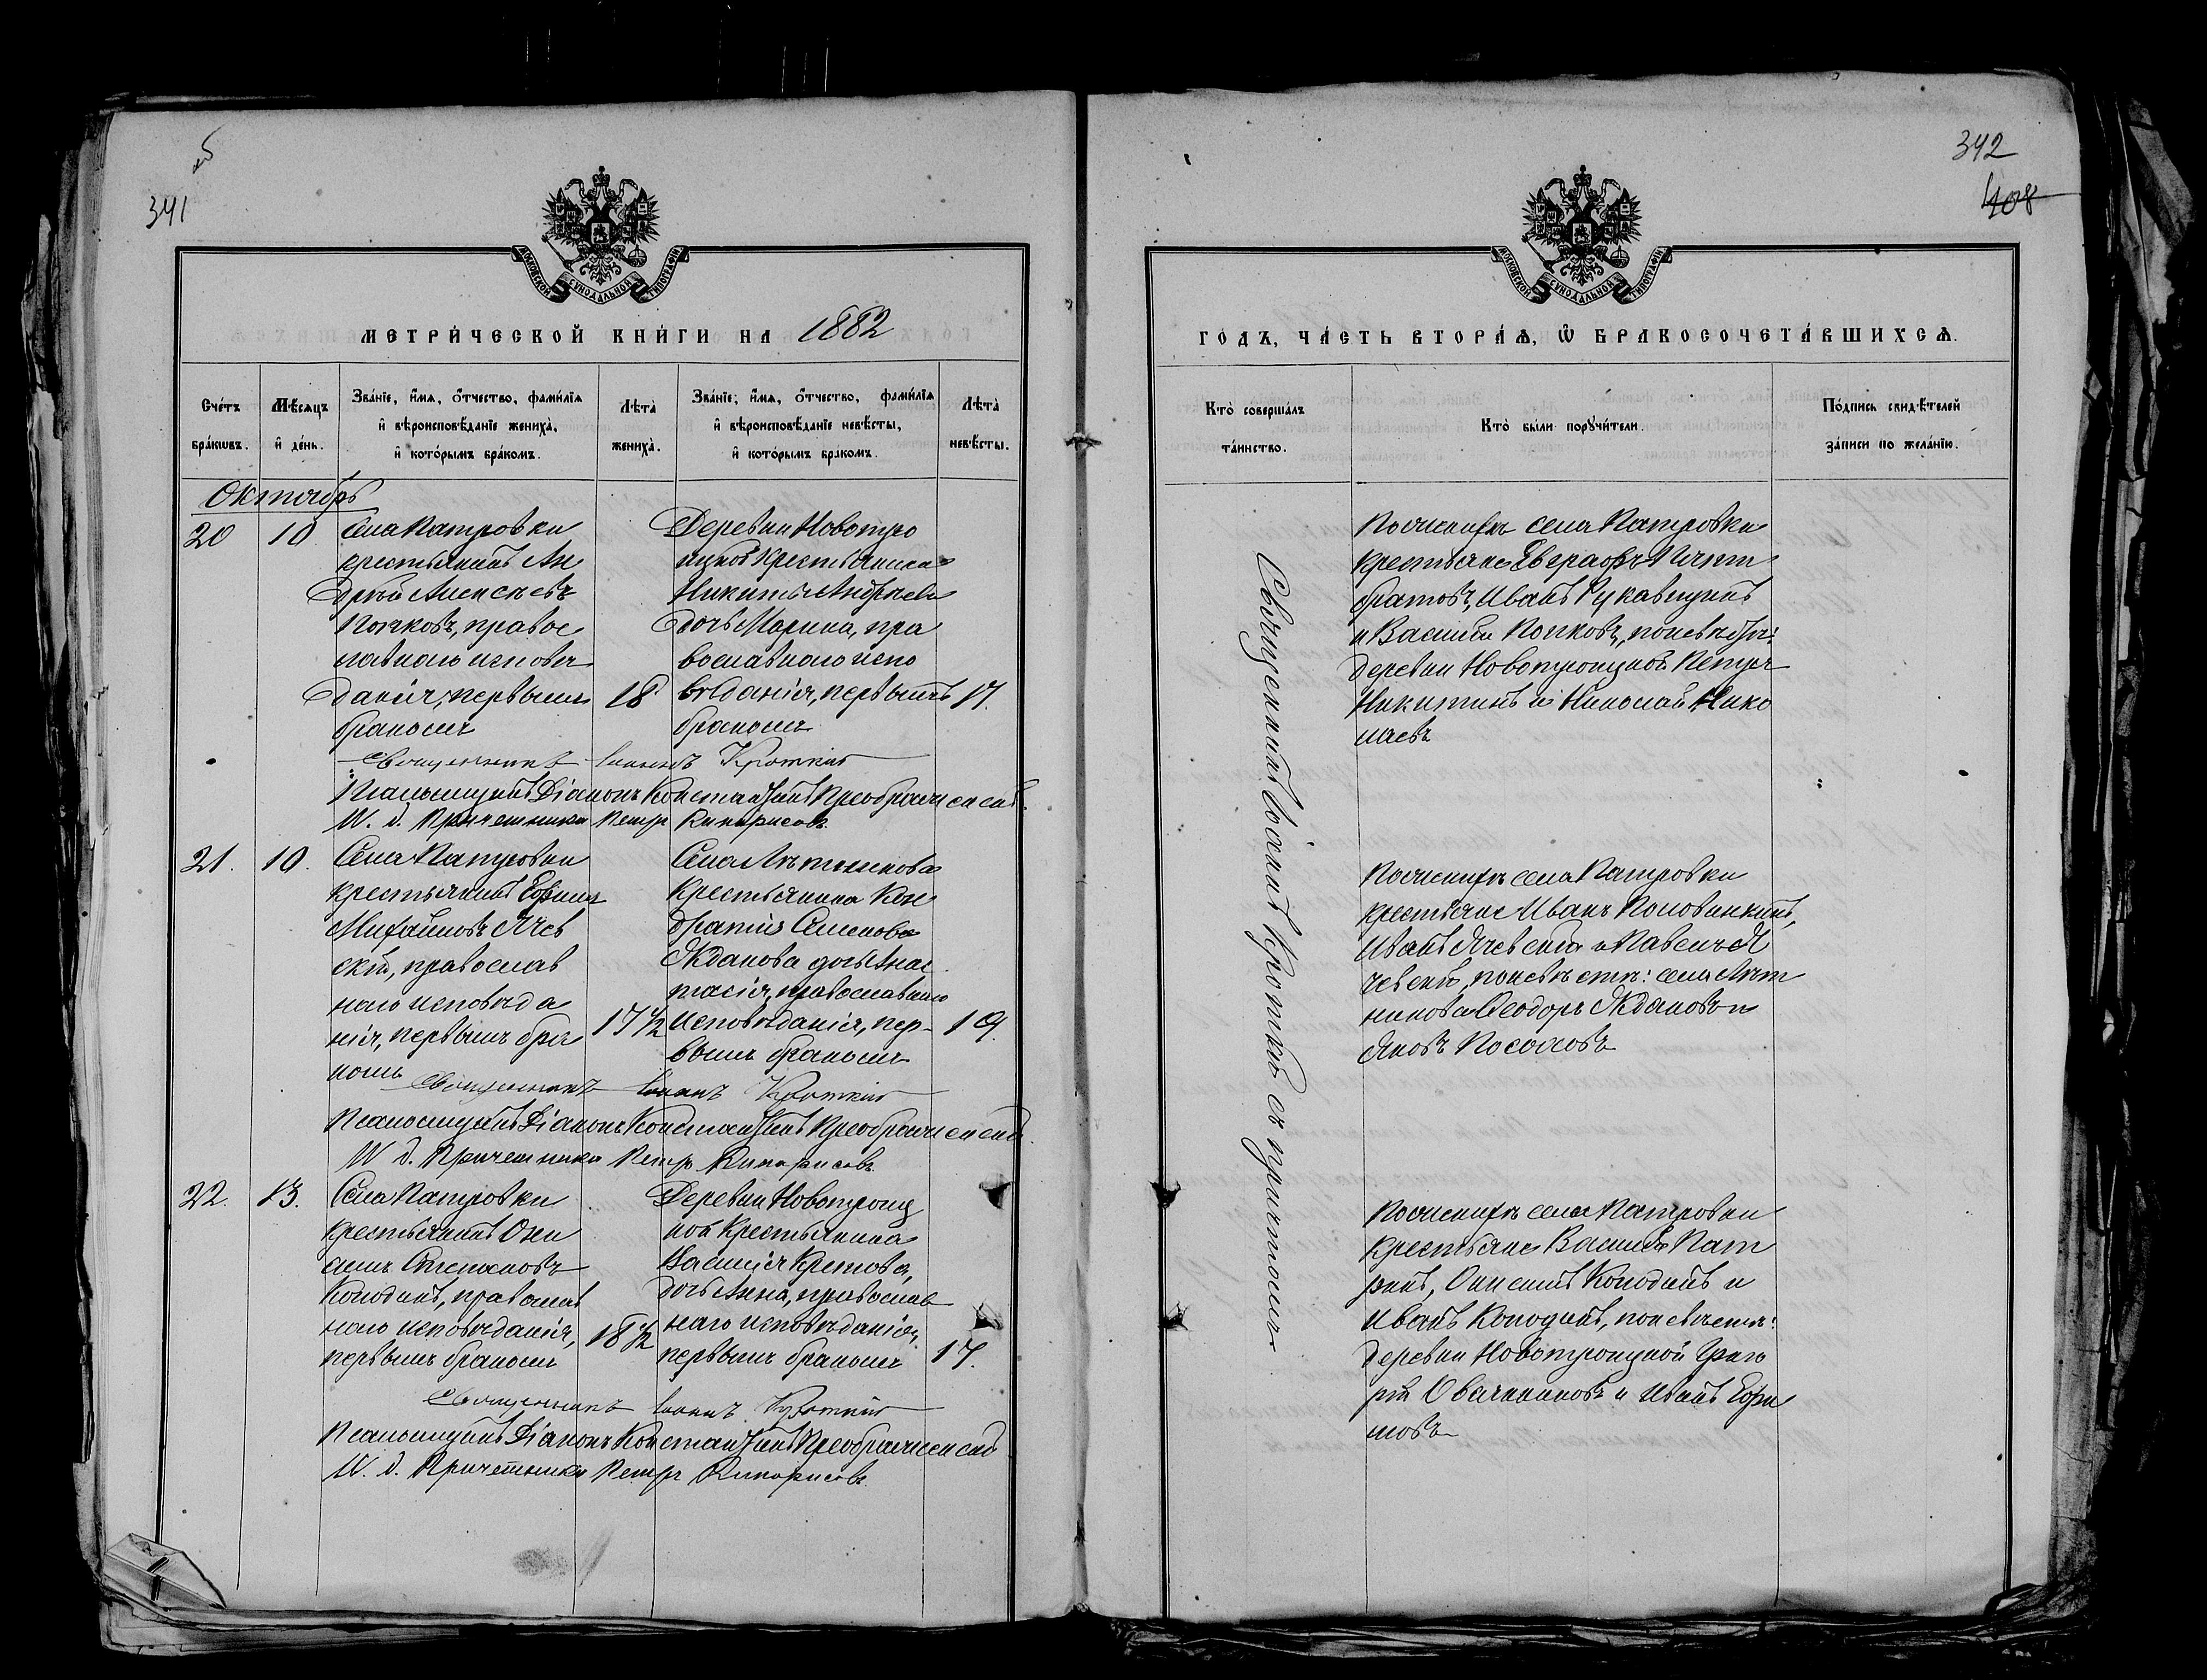 341
342
408
МОСКОВСКОЙ СѴНОДАЛЬНОЙ ТИПОГРАФІИ
МЕТРИ́ЧЕСКОЙ КНИ́ГИ НА 1882
Сче́тъ бра́кѡвъ.
Мѣ́сяцъ и҆ де́нь.
Зва́нїе, и҆́мѧ, ѻ҆́тчество, фами́лїѧ
и҆ вѣроисповѣ́данїе жениха̀,
и҆ кото́рымъ бра́комъ.
Лѣта̀ жениха̀.
Зва́нїе, и҆́мѧ, ѻ҆́тчество, фами́лїѧ
и҆ вѣроисповѣ́данїе невѣ́сты,
и҆ кото́рымъ бра́комъ.
Лѣта̀ невѣ́сты.
Октябрь
20
10
Села Патровки
крестьянинъ Ан
дрей Алексѣевъ
Попковъ, правос
лавнаго исповѣ
данія, первымъ
бракомъ
18
Деревни Новотро
ицкой крестьянина
Никиты Андреева
дочь Марина, пра
вославнаго испо
вѣданія, первымъ
бракомъ
17.
Священникъ Іоаннъ Кроткій
Псаломщикъ Діаконъ Константинъ Преображенскій.
И. д. Причетника Петръ Кипарисовъ.
21.
10.
Села Патровки
крестьянинъ Ефимъ
Михайловъ Ячев
скій, православ
наго исповѣда
нія, первымъ бра
комъ
17 1/2
Села Лѣтникова
крестьянина Кон
дратія Семенова
Жданова дочь Анас
тасія, православнаго
исповѣданія, пер-
вымъ бракомъ
19.
Священникъ Іоаннъ Кроткій
Псаломщикъ Діаконъ Константинъ Преображенскій.
И. д. Причетника Петръ Кипарисовъ.
22.
13.
Села Патровки
крестьянинъ Они
симъ Степановъ
Колодинъ, православ
наго исповѣданія,
первымъ бракомъ
18 1/2
Деревни Новотроиц
кой крестьянина
Василія
дочь Анна, православ
наго исповѣданія,
первымъ бракомъ
17.
Священникъ Іоаннъ Кроткій
Псаломщикъ Діаконъ Константинъ Преображенскій
И. д. Причетника Петръ Кипарисовъ.
МОСКОВСКОЙ СѴНОДАЛЬНОЙ ТИПОГРАФІИ
ГО́ДЪ, ЧА́СТЬ ВТОРА́Ѧ, Ѡ҆ БРАКОСОЧЕТА́ВШИХСѦ.
Кто̀ соверша́лъ та́инство.
Кто̀ бы́ли порꙋчи́тели.
По́дпись свидѣ́телей
за́писи по жела́нїю.
Священникъ Іоаннъ Кроткій съ причтомъ
По женихѣ села Патровки
крестьяне
Иванъ Рукавицынъ
и Василій Попковъ, по невѣстѣ:
деревни Новотроицкой Петръ
Никитинъ и Николай Нико
лаевъ
По женихѣ села Патровки
крестьяне Иванъ Половинкинъ,
Иванъ Ячевскій и Павелъ Я
чевскій, по невѣстѣ: села Лѣт
никова Ѳеодоръ Ждановъ и
Яковъ
По женихѣ села Патровки
крестьяне Василій Пат
ринъ, Онисимъ Колодинъ и
Иванъ Колодинъ, по невѣстѣ:
деревни Новотроицкой Григо
рій Овсянниковъ и Иванъ Ефи
мовъ